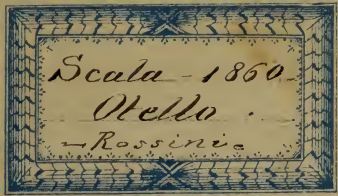 Scala - 1860.
Otello.
- Rossini -